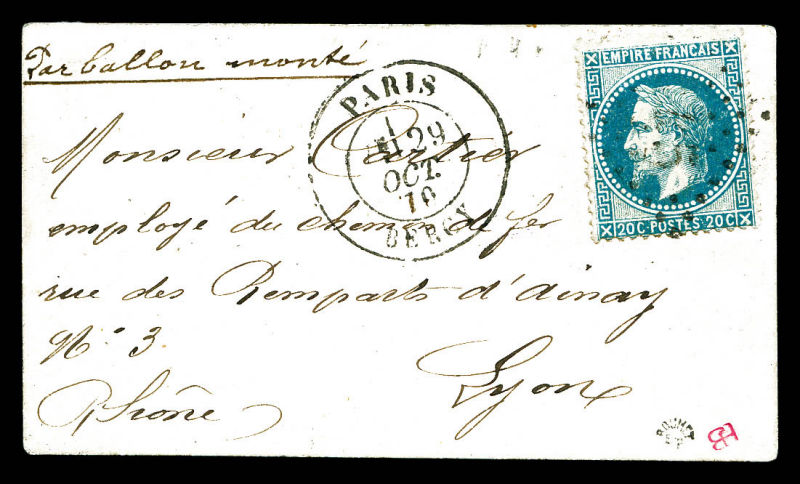 Par Ballon monté
PARIS
1
E
29
OCT.
70
BERCY
EMPIRE FRANÇAIS
20C POSTES 20C
Monsieur Cartier
employé du chemin de fer
rue des Remparts d'Ainay
N° 3.
Lyon
Rhône
ROUMET